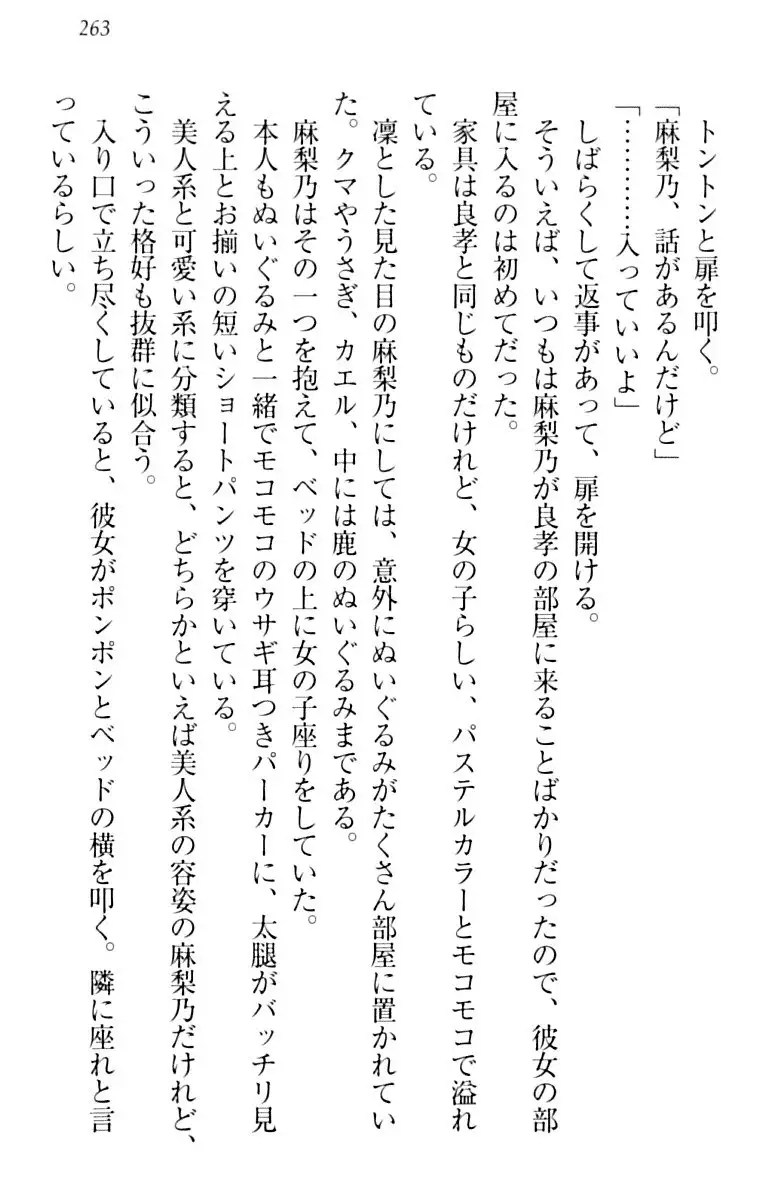 263
トントンと扉を叩く。
「麻梨乃、話があるんだけど」
「…………入っていいよ」
しばらくして返事があって、扉を開ける。
そういえば、いつもは麻梨乃が良孝の部屋に来ることばかりだったので、彼女の部
屋に入るのは初めてだった。
家具は良孝と同じものだけれど、女の子らしい、パステルカラーとモコモコで溢れ
ている。
凜とした見た目の麻梨乃にしては、意外にぬいぐるみがたくさん部屋に置かれてい
た。クマやうさぎ、カエル、中には鹿のぬいぐるみまである。
麻梨乃はその一つを抱えて、ベッドの上に女の子座りをしていた。
本人もぬいぐるみと一緒でモコモコのウサギ耳つきパーカーに、太腿がバッチリ見
える上とお揃いの短いショートパンツを穿いている。
美人系と可愛い系に分類すると、どちらかといえば美人系の容姿の麻梨乃だけれど、
こういった格好も抜群に似合う。
入り口で立ち尽くしていると、彼女がポンポンとベッドの横を叩く。隣に座れと言
っているらしい。